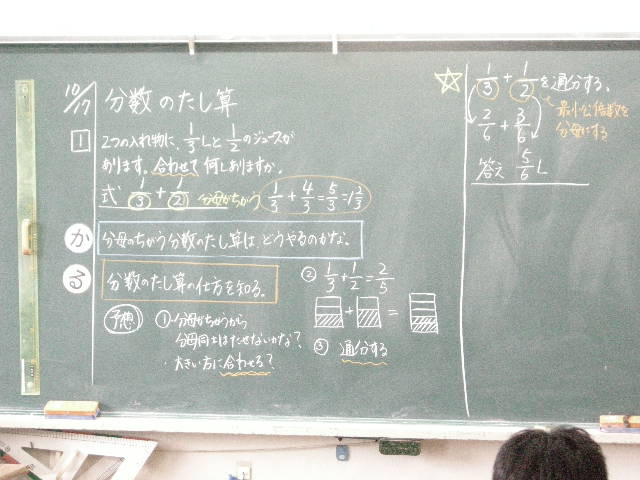 10/17 分数のたし算
1 2つの入れ物に、1/3Lと1/2のジュースが
あります。合わせて何Lありますか。
式 1/3+1/2 分母がちがう 1/3+4/3=5/3=1 2/3
か 分母のちがう分数のたし算は、どうやるのかな。
る 分数のたし算の仕方を知る。
予想 ① 分母がちがうから
分母同士はたせないかな?
・大きい方に合わせる?
② 1/3+1/2=2/5
+ =
③ 通分する
☆ 1/3+1/2を通分する。
最小公倍数を
分母にする
2/6+3/6
答え 5/6L